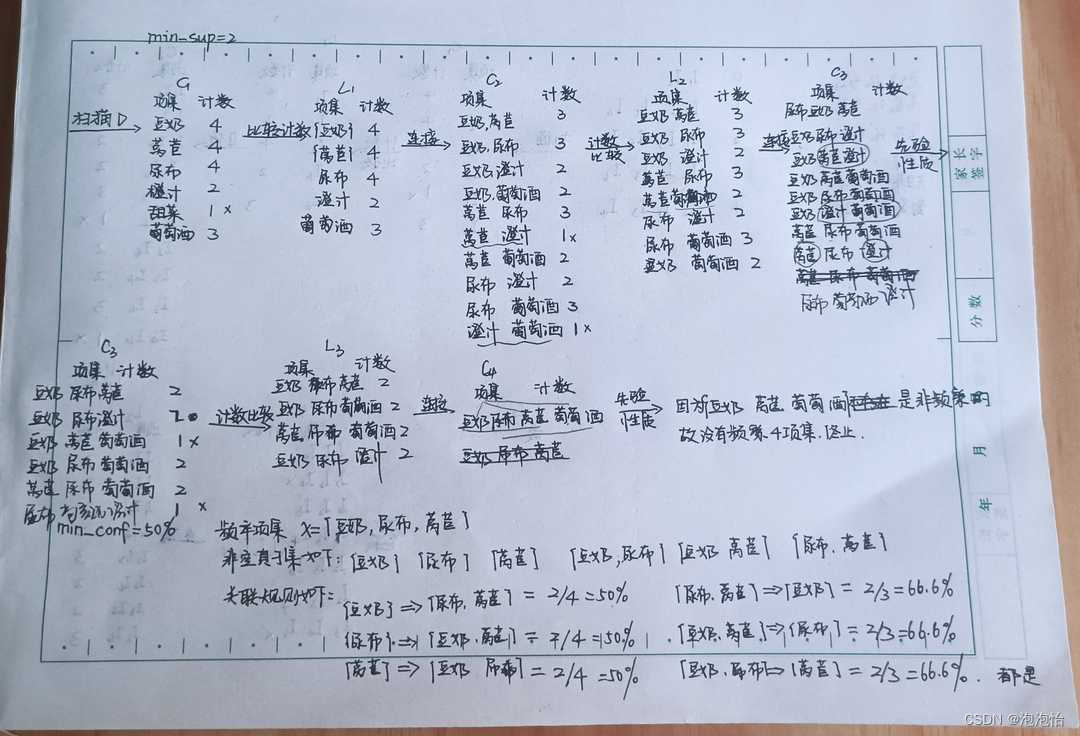 min_sup=2
扫描D
C1
项集 计数
豆奶 4
莴苣 4
尿布 4
橙汁 2
甜菜 1 ×
葡萄酒 3
比较计数
L1
项集 计数
{豆奶} 4
{莴苣} 4
尿布 4
橙汁 2
葡萄酒 3
连接
C2
项集 计数
豆奶,莴苣 3
豆奶,尿布 3
豆奶 橙汁 2
豆奶,葡萄酒 2
莴苣 尿布 3
莴苣 橙汁 1×
莴苣 葡萄酒 2
尿布 橙汁 2
尿布 葡萄酒 3
橙汁 葡萄酒 1×
计数比较
L2
项集 计数
豆奶 莴苣 3
豆奶 尿布 3
豆奶 橙汁 2
莴苣 尿布 3
莴苣 葡萄酒 2
尿布 橙汁 2
尿布 葡萄酒 3
豆奶 葡萄酒 2
连接
C3
项集 计数
尿布 豆奶 莴苣
豆奶 尿布 橙汁
豆奶 莴苣 橙汁
豆奶 莴苣 葡萄酒
豆奶 尿布 葡萄酒
豆奶 橙汁 葡萄酒
莴苣 尿布 葡萄酒
莴苣 尿布 橙汁
莴苣 尿布 葡萄酒
尿布 葡萄酒 橙汁
先验性质
家长签字
分数
年 月
C3
项集 计数
豆奶 尿布 莴苣 2
豆奶 尿布 橙汁 2
豆奶 莴苣 葡萄酒 1×
豆奶 尿布 葡萄酒 2
莴苣 尿布 葡萄酒 2
尿布 橙汁 1 ×
计数比较
L3
项集 计数
豆奶 尿布 莴苣 2
豆奶 尿布 葡萄酒 2
莴苣 尿布 葡萄酒 2
豆奶 尿布 橙汁 2
连接
C4
项集 计数
豆奶 尿布 莴苣 葡萄酒
豆奶 尿布 莴苣
先验性质
因为{豆奶 莴苣 葡萄酒}是非频繁的
故没有频繁4项集.终止.
min_conf=50%
频率项集 X={豆奶,尿布,莴苣}
非空真子集如下:{豆奶} {尿布} {莴苣} {豆奶,尿布} {豆奶 莴苣} {尿布,莴苣}
关联规则如下:
{豆奶}=>{尿布,莴苣} = 2/4=50% {尿布,莴苣}=>{豆奶} = 2/3=66.6%
{尿布}=>{豆奶,莴苣} = 2/4=50% {豆奶,莴苣}=>{尿布} = 2/3=66.6%
{莴苣}=>{豆奶 尿布} = 2/4=50% {豆奶,尿布}=>{莴苣} = 2/3=66.6%. 都是
CSDN @泡泡怡